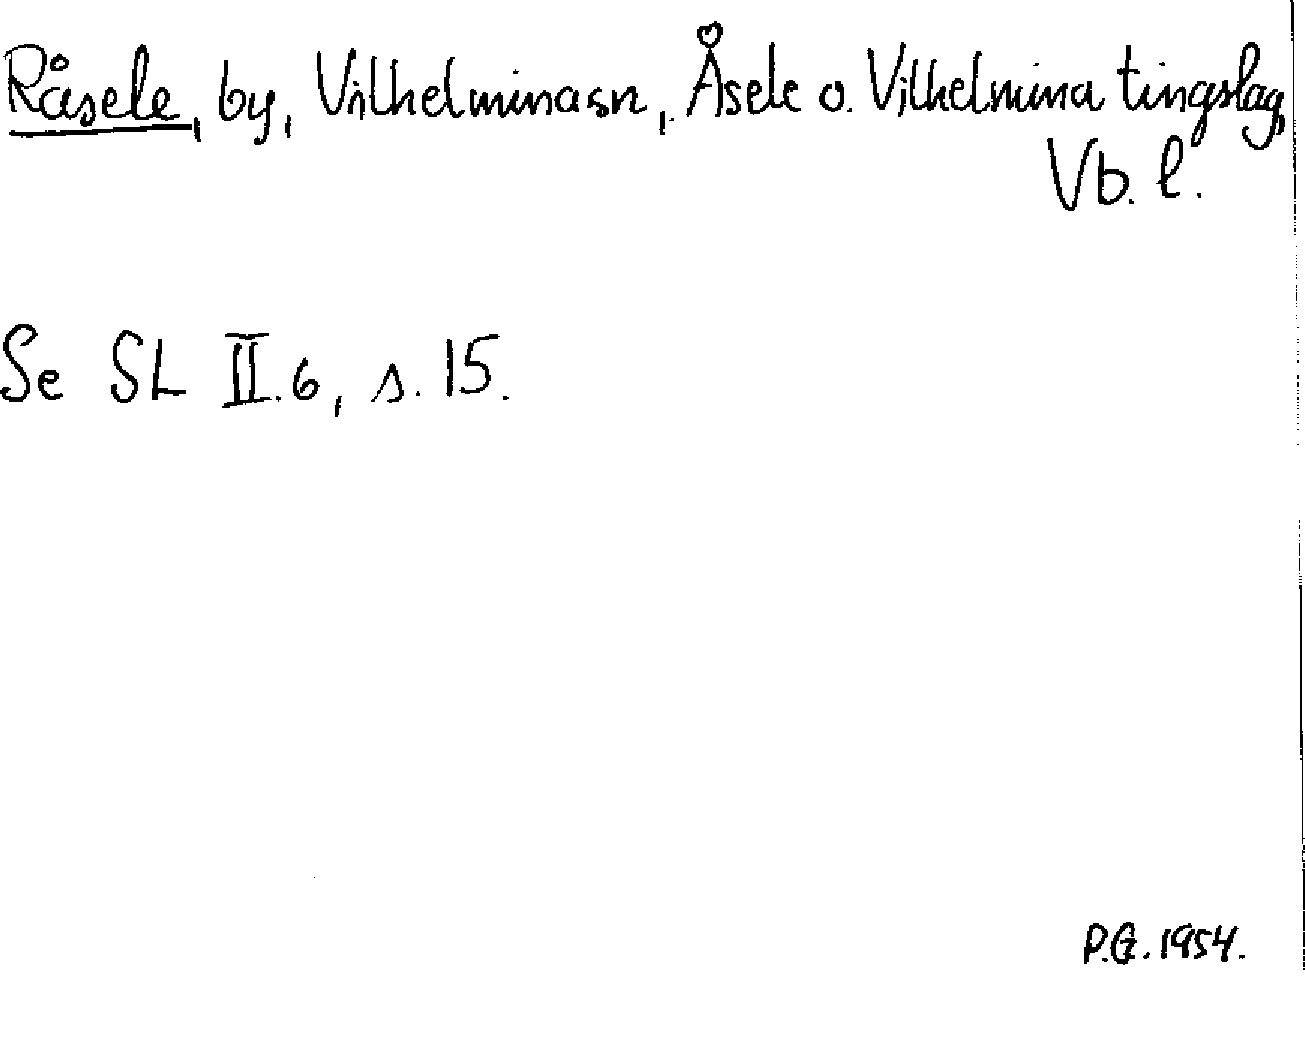 Råsele, by, Vilhelmina sn, Åsele o. Vilhelmina tingslag,
Vb. l.
Se SL II.6, s. 15.
P.G. 1954.